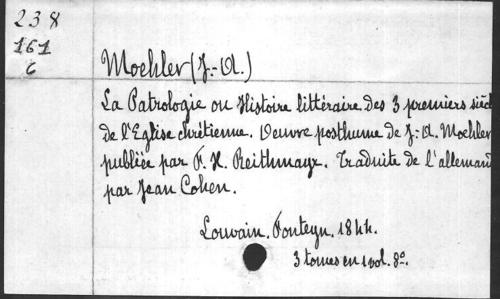 238
161
6
Moehler (J.-A.)
La Patrologie ou Histoire littéraire des 3 premiers siècl
de l'Eglise chrétienne. Oeuvre posthume de J.-A. Moehler
publiée par F. X. Reithmayr. Traduite de l'allemand
par Jean Cohen.
Louvain. Fonteyn. 1844.
3 tomes en 1 vol. 8°.